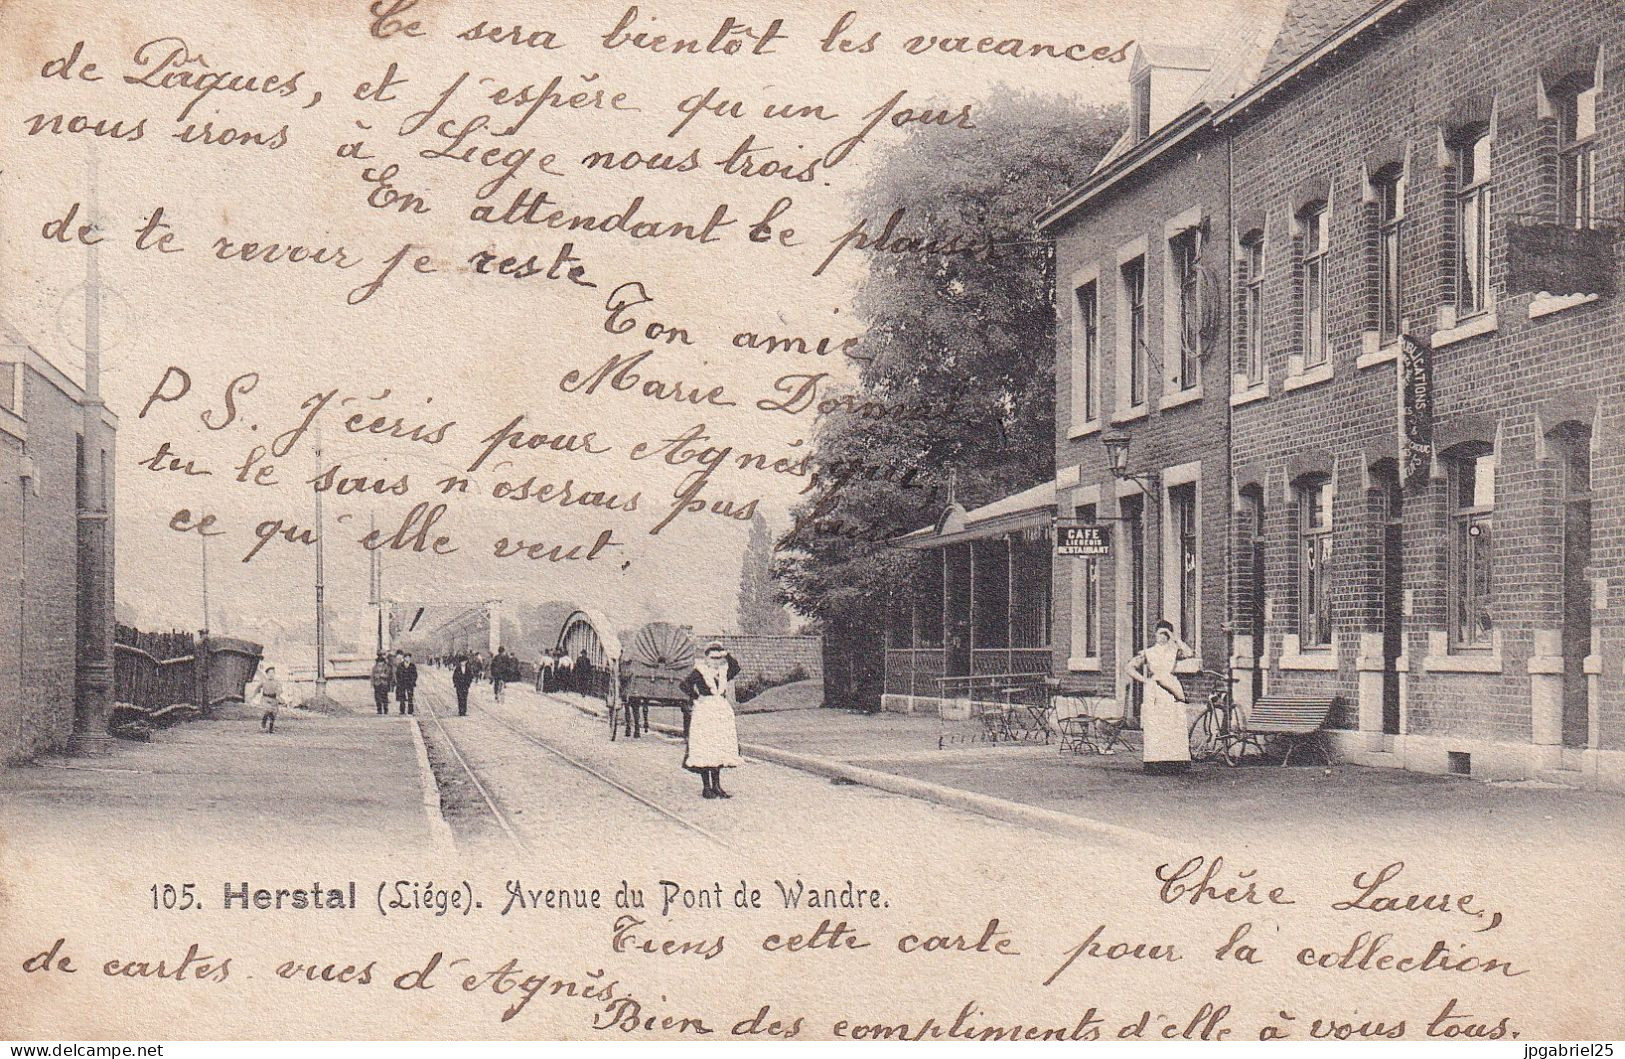 Ce sera bientôt les vacances
de Pâques, et j'espère qu'un jour
nous irons à Liège nous trois.
En attendant le plaisir
de te revoir je reste
Ton amie
Marie
PS. J'écris pour Agnès, qui,
tu le sais n'oserais pas faire
ce qu'elle veut.
CAFÉ
RESTAURANT
105. Herstal (Liége). Avenue du Pont de Wandre.
Chère Laure,
Tiens cette carte pour la collection
de cartes vues d'Agnès.
Bien des compliments d'elle à vous tous.
delcampe.net
jpgabriel25